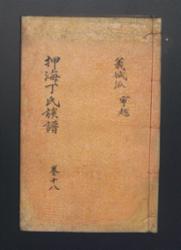 義城派
押海丁氏族譜 卷十八